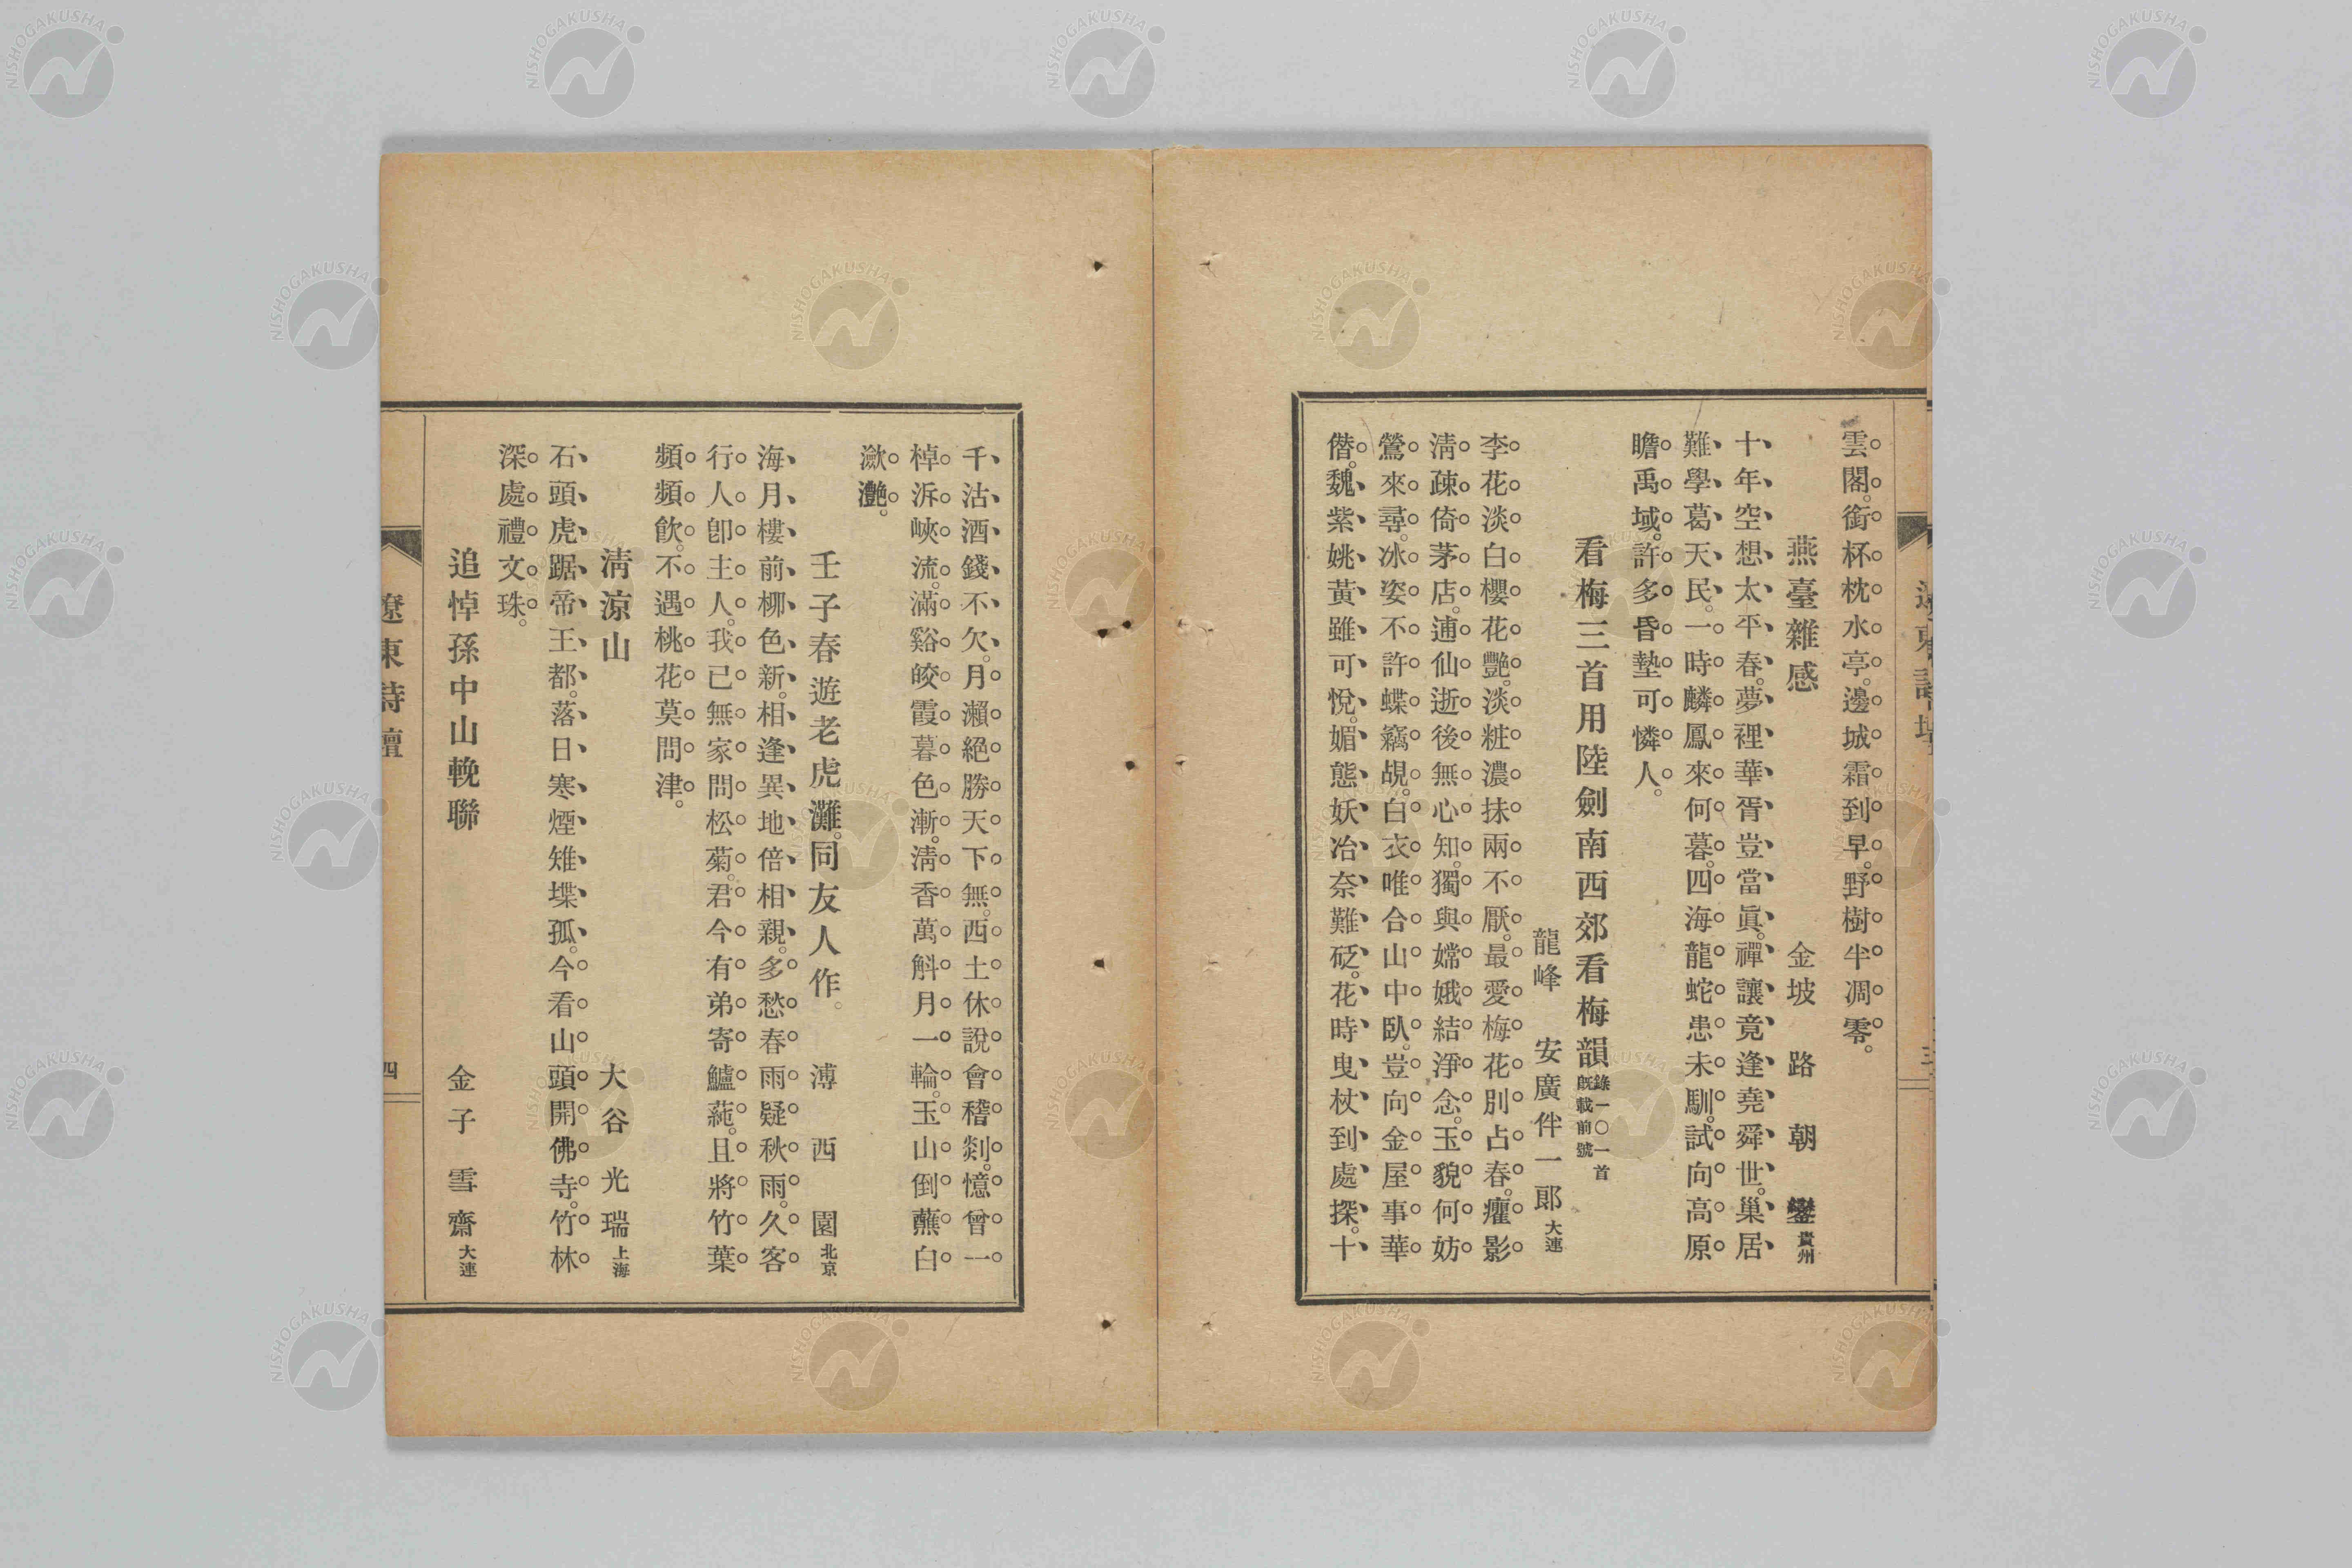 雲閣。銜杯枕水亭。邊城霜到早。野樹半凋零。
燕臺雜感
金坡 路朝鑾 貴州
十年空想太平春。夢裡華胥豈當眞。禪讓竟逢堯舜世。巢居
難學葛天民。一時麟鳳來何暮。四海龍蛇患未馴。試向高原
瞻禹域。許多昏墊可憐人。
看梅三首用陸劍南西郊看梅韻 錄一〇一首既載前號
龍峰 安廣伴一郎 大連
李花淡白櫻花艷。淡粧濃抹兩不厭。最愛梅花別占春。癯影
淸疎倚茅店。逋仙逝後無心知。獨與嫦娥結淨念。玉貌何妨
鶯來尋。冰姿不許蝶竊覘。白衣唯合山中臥。豈向金屋事華
僭。魏紫姚黃雖可悅。媚態妖冶奈難砭。花時曳杖到處探。十
遼東詩壇
三
千沽酒錢不欠。月瀨絕勝天下無。西土休說會稽剡。憶曾一
棹泝峽流。滿谿皎霞暮色漸。淸香萬斛月一輪。玉山倒蘸白
瀲灔。
壬子春遊老虎灘。同友人作。
溥西園 北京
海月樓前柳色新。相逢異地倍相親。多愁春雨疑秋雨。久客
行人卽主人。我已無家問松菊。君今有弟寄鱸蒓。且將竹葉
頻頻飮。不遇桃花莫問津。
淸涼山
大谷光瑞 上海
石頭虎踞帝王都。落日寒煙雉堞孤。今看山頭開佛寺。竹林
深處禮文珠。
追悼孫中山輓聯
金子雪齋 大連
遼東詩壇
四
NISHOGAKUSHA